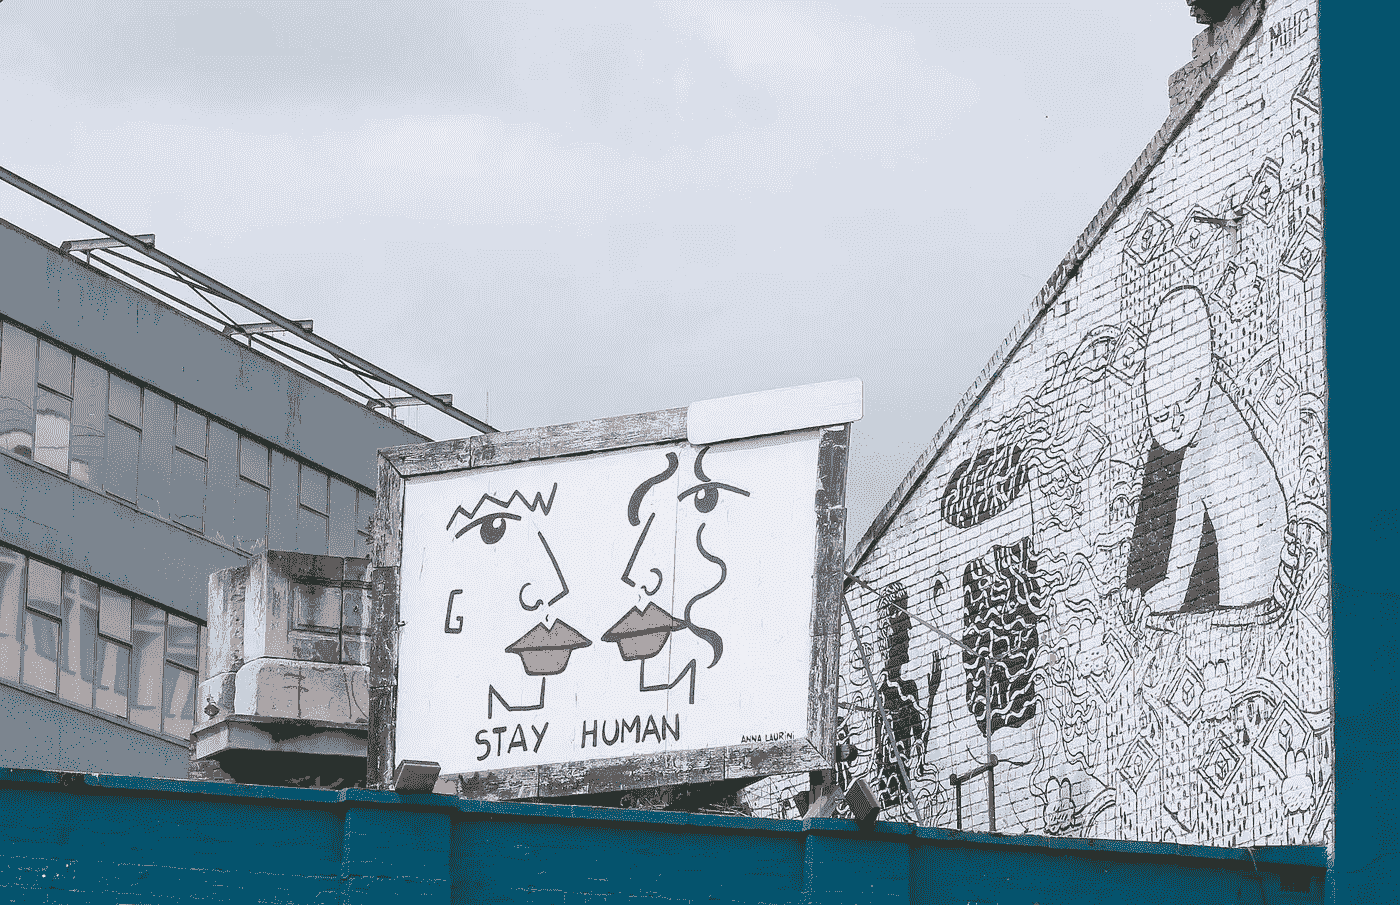 STAY HUMAN
ANNA LAURINI